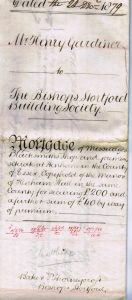 Dated the 24 Dec. 1879
Mr Henry Gardiner
to
The Bishop's Stortford
Building Society.
Mortgage of Messuage
Blacksmiths Shop and premises
situate at in the County
of Essex Copyhold of the Manor
of Hall in the same
County for securing £200 and
a further sum of £40 by way
of premium.
Baker &
Bishops Stortford